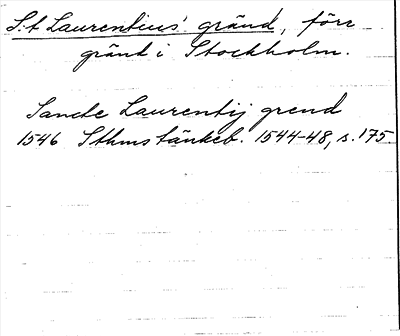 S:t Laurentius' gränd, före
gränd i Stockholm.
Sancte Laurentij grend
1546 Sthms tänkeb. 1544-48, s. 175